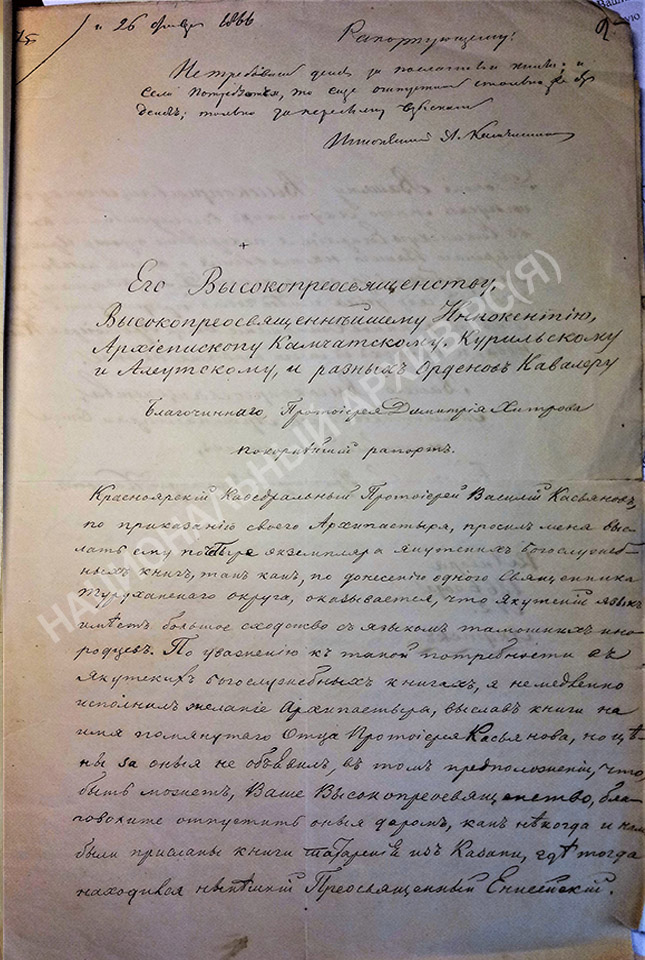 и 26 1866
2
Рапортующему!
Не требовать денег за посланныя книги; и
если потребуется, то еще отпустить столько же безъ
денегъ; только за пересылку
Иннокентій А. Камчатскій
Его Высокопреосвященству,
Высокопреосвященнѣйшему Иннокентію,
Архіепископу Камчатскому, Курильскому
и Алеутскому, и разныхъ Орденовъ Кавалеру
Благочиннаго, Протоіерея Димитрія Хитрова
покорнѣйшій рапортъ.
Красноярскій Каѳедральный Протоіерей Василій Касьяновъ,
по приказанію своего Архипастыря, просилъ меня выс-
лать ему по четыре экземпляра якутскихъ богослужеб-
ныхъ книгъ, такъ какъ, по донесенію одного Священника
Туруханскаго округа, оказывается, что якутскій языкъ
имѣетъ большое сходство съ языкомъ тамошнихъ ино-
родцевъ. По уваженію къ такой потребности въ
якутскихъ богослужебныхъ книгахъ, я немедленно
исполнилъ желаніе Архипастыря, выславъ книги на
имя помянутаго Отца Протоіерея Касьянова, но цѣ-
ны за оныя не объявилъ, въ томъ предположеніи, что,
быть можетъ, Ваше Высокопреосвященство, бла-
говолите отпустить оныя даромъ, какъ нѣкогда и намъ
были присланы книги татарскія изъ Казани, гдѣ тогда
находился нынѣшній Преосвященный Енисейскій.
НАЦИОНАЛЬНЫЙ АРХИВ РС(Я)